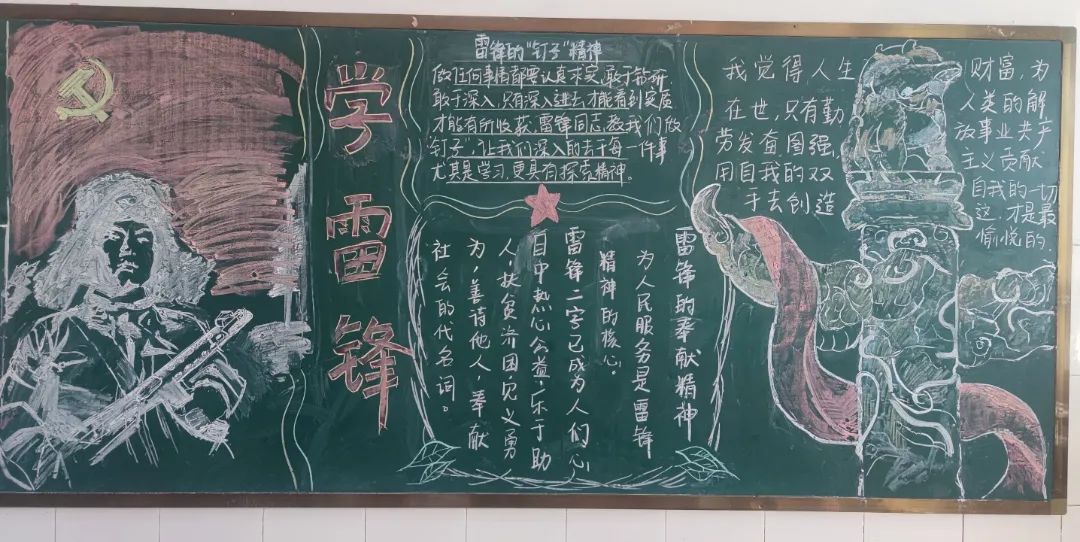 学雷锋
雷锋的"钉子"精神
做任何事情都要认真求实,敢于钻研
敢于深入,只有深入进去,才能看到实质
才能有所收获,雷锋同志教我们做
"钉子",让我们深入的去干每一件事
尤其是学习,更具有探索精神。
雷锋的奉献精神
为人民服务是雷锋
精神的核心。
雷锋二字已成为人们心
目中热心公益,乐于助
人,扶贫济困见义勇
为,善待他人,奉献
社会的代名词。
我觉得人生
在世,只有勤
劳发奋图强,
用自我的双
手去创造
财富,为
人类的解
放事业共产
主义贡献
自我的一切
这,才是最
愉悦的.